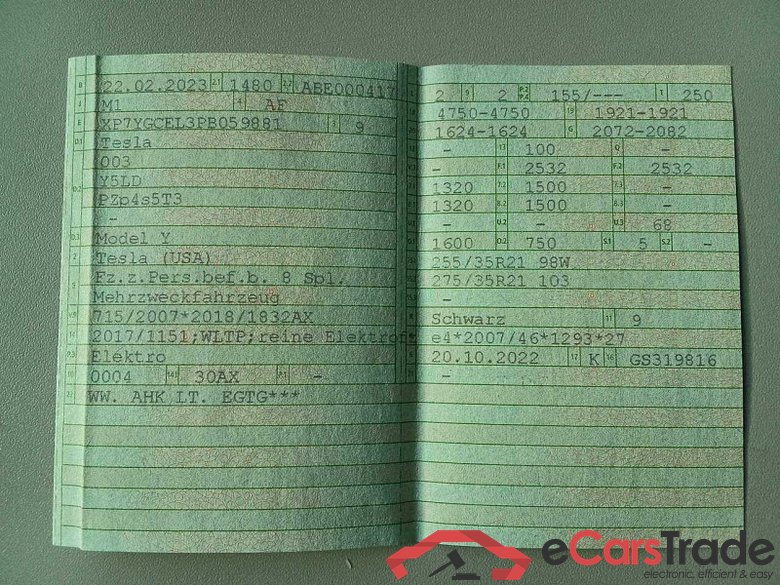 B 22.02.2023 2.1 1480 2.2 ABE000417
J M1 4 AF
E XP7YGCEL3PB059881 3 9
D.1 Tesla
003
D.2 Y5LD
PZp4s5T3
-
D.3 Model Y
2 Tesla (USA)
5 Fz.z.Pers.bef.b. 8 Spl.
Mehrzweckfahrzeug
V.9 715/2007*2018/1832AX
14 2017/1151;WLTP;reine Elektrof
P.3 Elektro
10 0004 14.1 30AX P.1 -
22 WW. AHK LT. EGTG***
L 2 9 2 P.2 P.4 155/--- T 250
18 4750-4750 19 1921-1921
20 1624-1624 G 2072-2082
- 13 100 Q -
- F.1 2532 F.2 2532
7.1 1320 7.2 1500 7.3 -
8.1 1320 8.2 1500 8.3 -
U.1 - U.2 - U.3 68
O.1 1600 O.2 750 S.1 5 S.2 -
255/35R21 98W
275/35R21 103
-
R Schwarz 11 9
K e4*2007/46*1293*27
6 20.10.2022 17 K 16 GS319816
-
eCarsTrade
electronic, efficient & easy